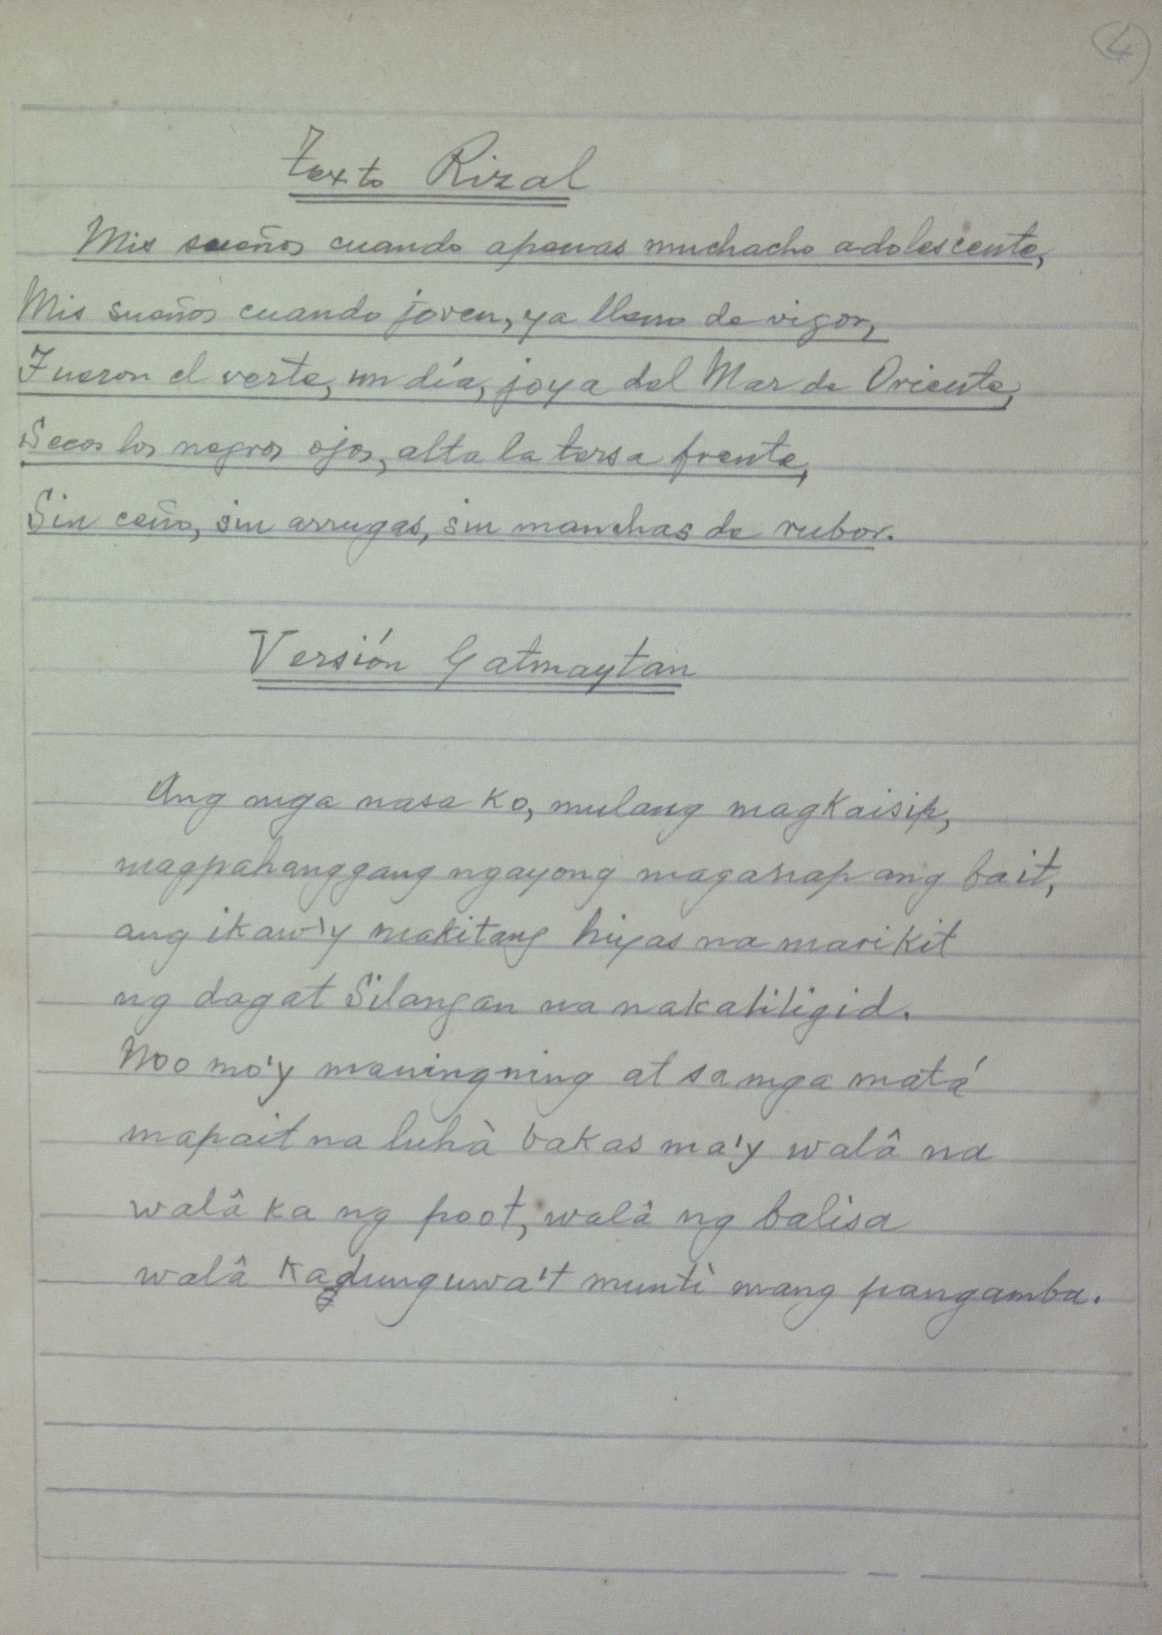 4
Texto Rizal
Mis sueños cuando apenas muchacho adolescente,
Mis sueños cuando joven, ya lleno de vigor,
Fueron el verte, un día, joya del Mar de Oriente,
Secos los negros ojos, alta la tersa frente,
Sin ceño, sin arrugas, sin manchas de rubor.
Versión Gatmaytan
Ang mga nasa ko, mulang magkaisip,
magpahanggang ngayong maganap ang bait,
ang ikaw-'y makitang hiyas na marikit
ng dagat Silangan na nakaliligid.
Noo mo'y maningning at sa mga matá
mapait na luhà bakas ma'y walâ na
walâ ka ng poot, walâ ng balisa
walâ kadunguwa't muntì mang pangamba.